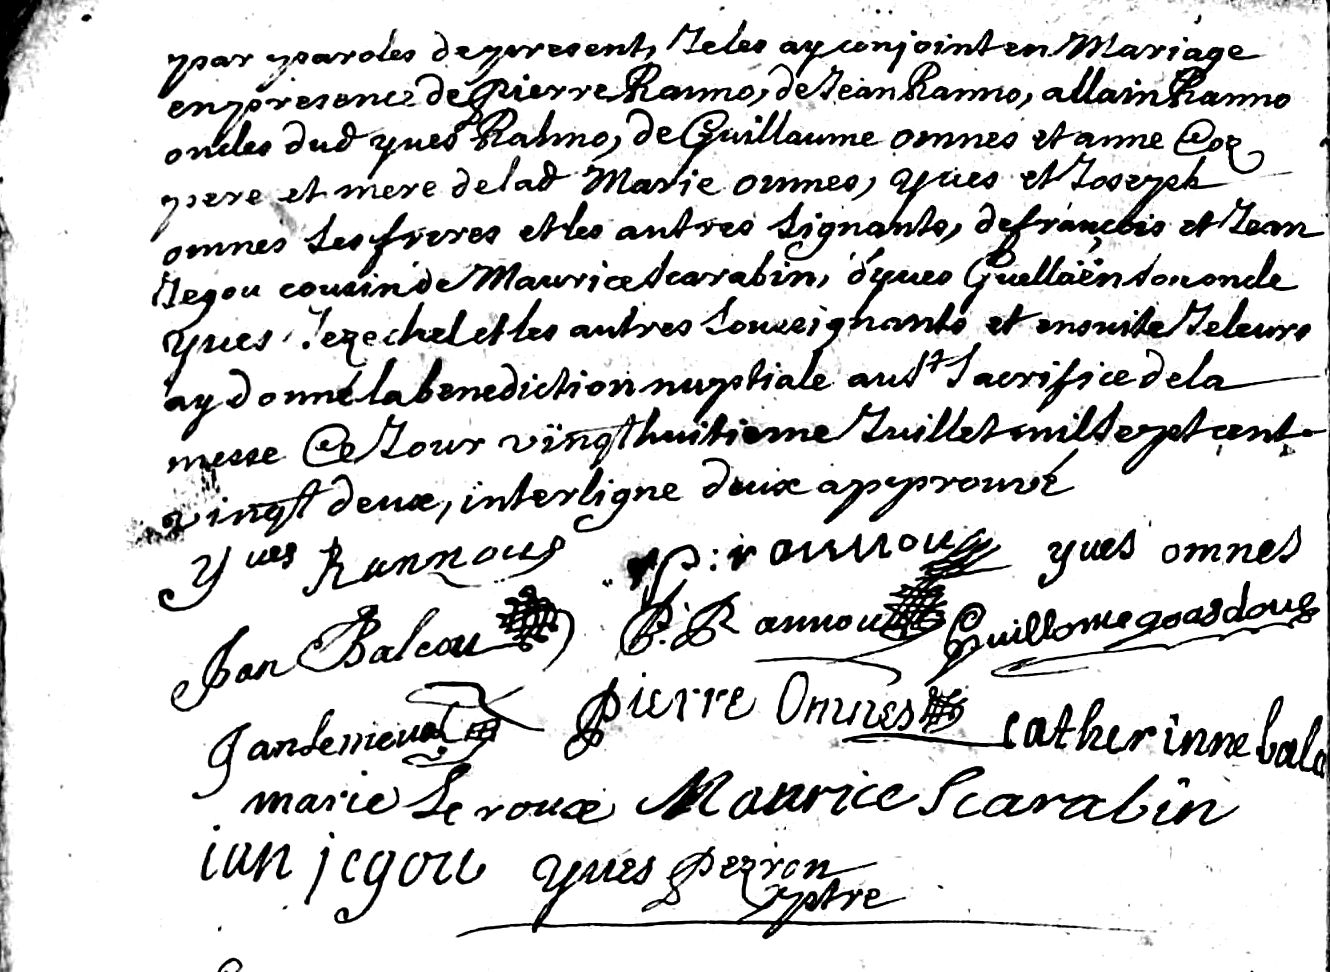 par paroles de present, Je les ay conjoint en Mariage
en presence de pierre Ranno, de Jean Ranno, allain Ranno
oncles dud yves Ranno, de Guillaume omnes et anne Coz
pere et mere de lad Marie omnes, yves et Joseph
omnes ses freres et les autres signants, de françois et Jean
Jegou cousin de Maurice Scarabin, d'yves Guellaën son oncle
yves Jezechel et les autres soussignants et ensuite Je leurs
ay donné la benediction nuptiale au st Sacrifice de la
messe Ce Jour vingt huitieme Juillet mil sept cent
vingt deux, interligne deux approuvé
yves Rannou P: rannou yves omnes
Jan Balcou P. Rannou Guillome goasdoue
Jan pierre Omnes catherinne bala
marie Le roux Maurice Scarabin
ian jegou yves pezron
ptre